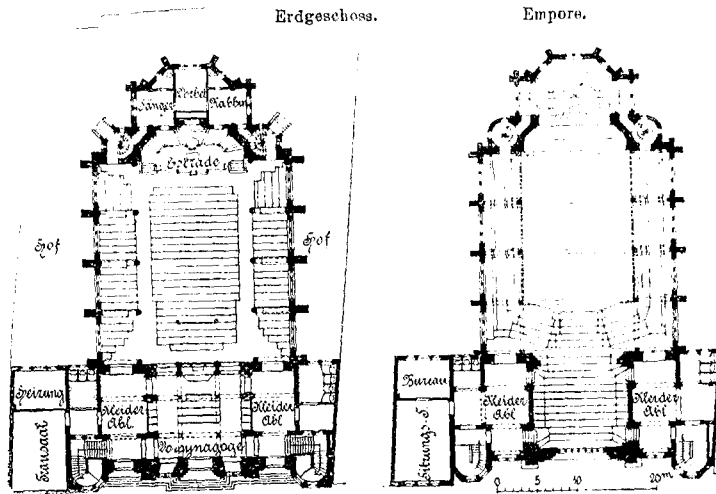 Erdgeschoss. Empore.
Sänger Vorbet. Rabbin.
Estrade
Hof Hof
Heizung
Kleider Abl. Kleider Abl.
Trausaal
Vorsynagoge
Bureau
Kleider Abl. Kleider Abl
Sitzungs-S.
0 5 10 20m